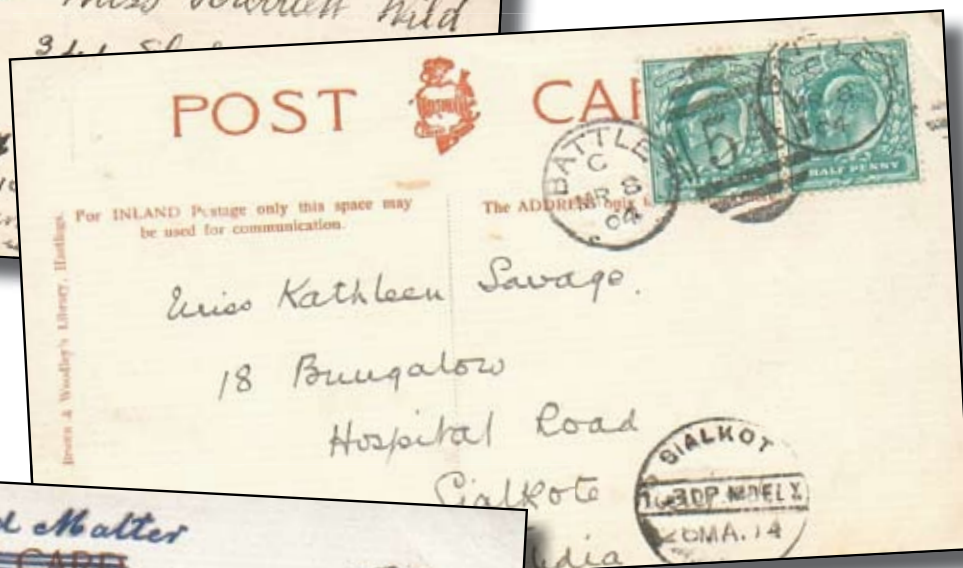 Miss
Wild
POST CAR
BATTLE
C
MR 8
04
HALF PENNY
For INLAND Postage only this space may
be used for communication.
The ADDRESS only
Brown & Woodley's Library, Hastings.
Miss Kathleen Savage.
18 Bungalow
Hospital Road
Sialkote
dia
SIALKOT
MA.
d Matter
CARD